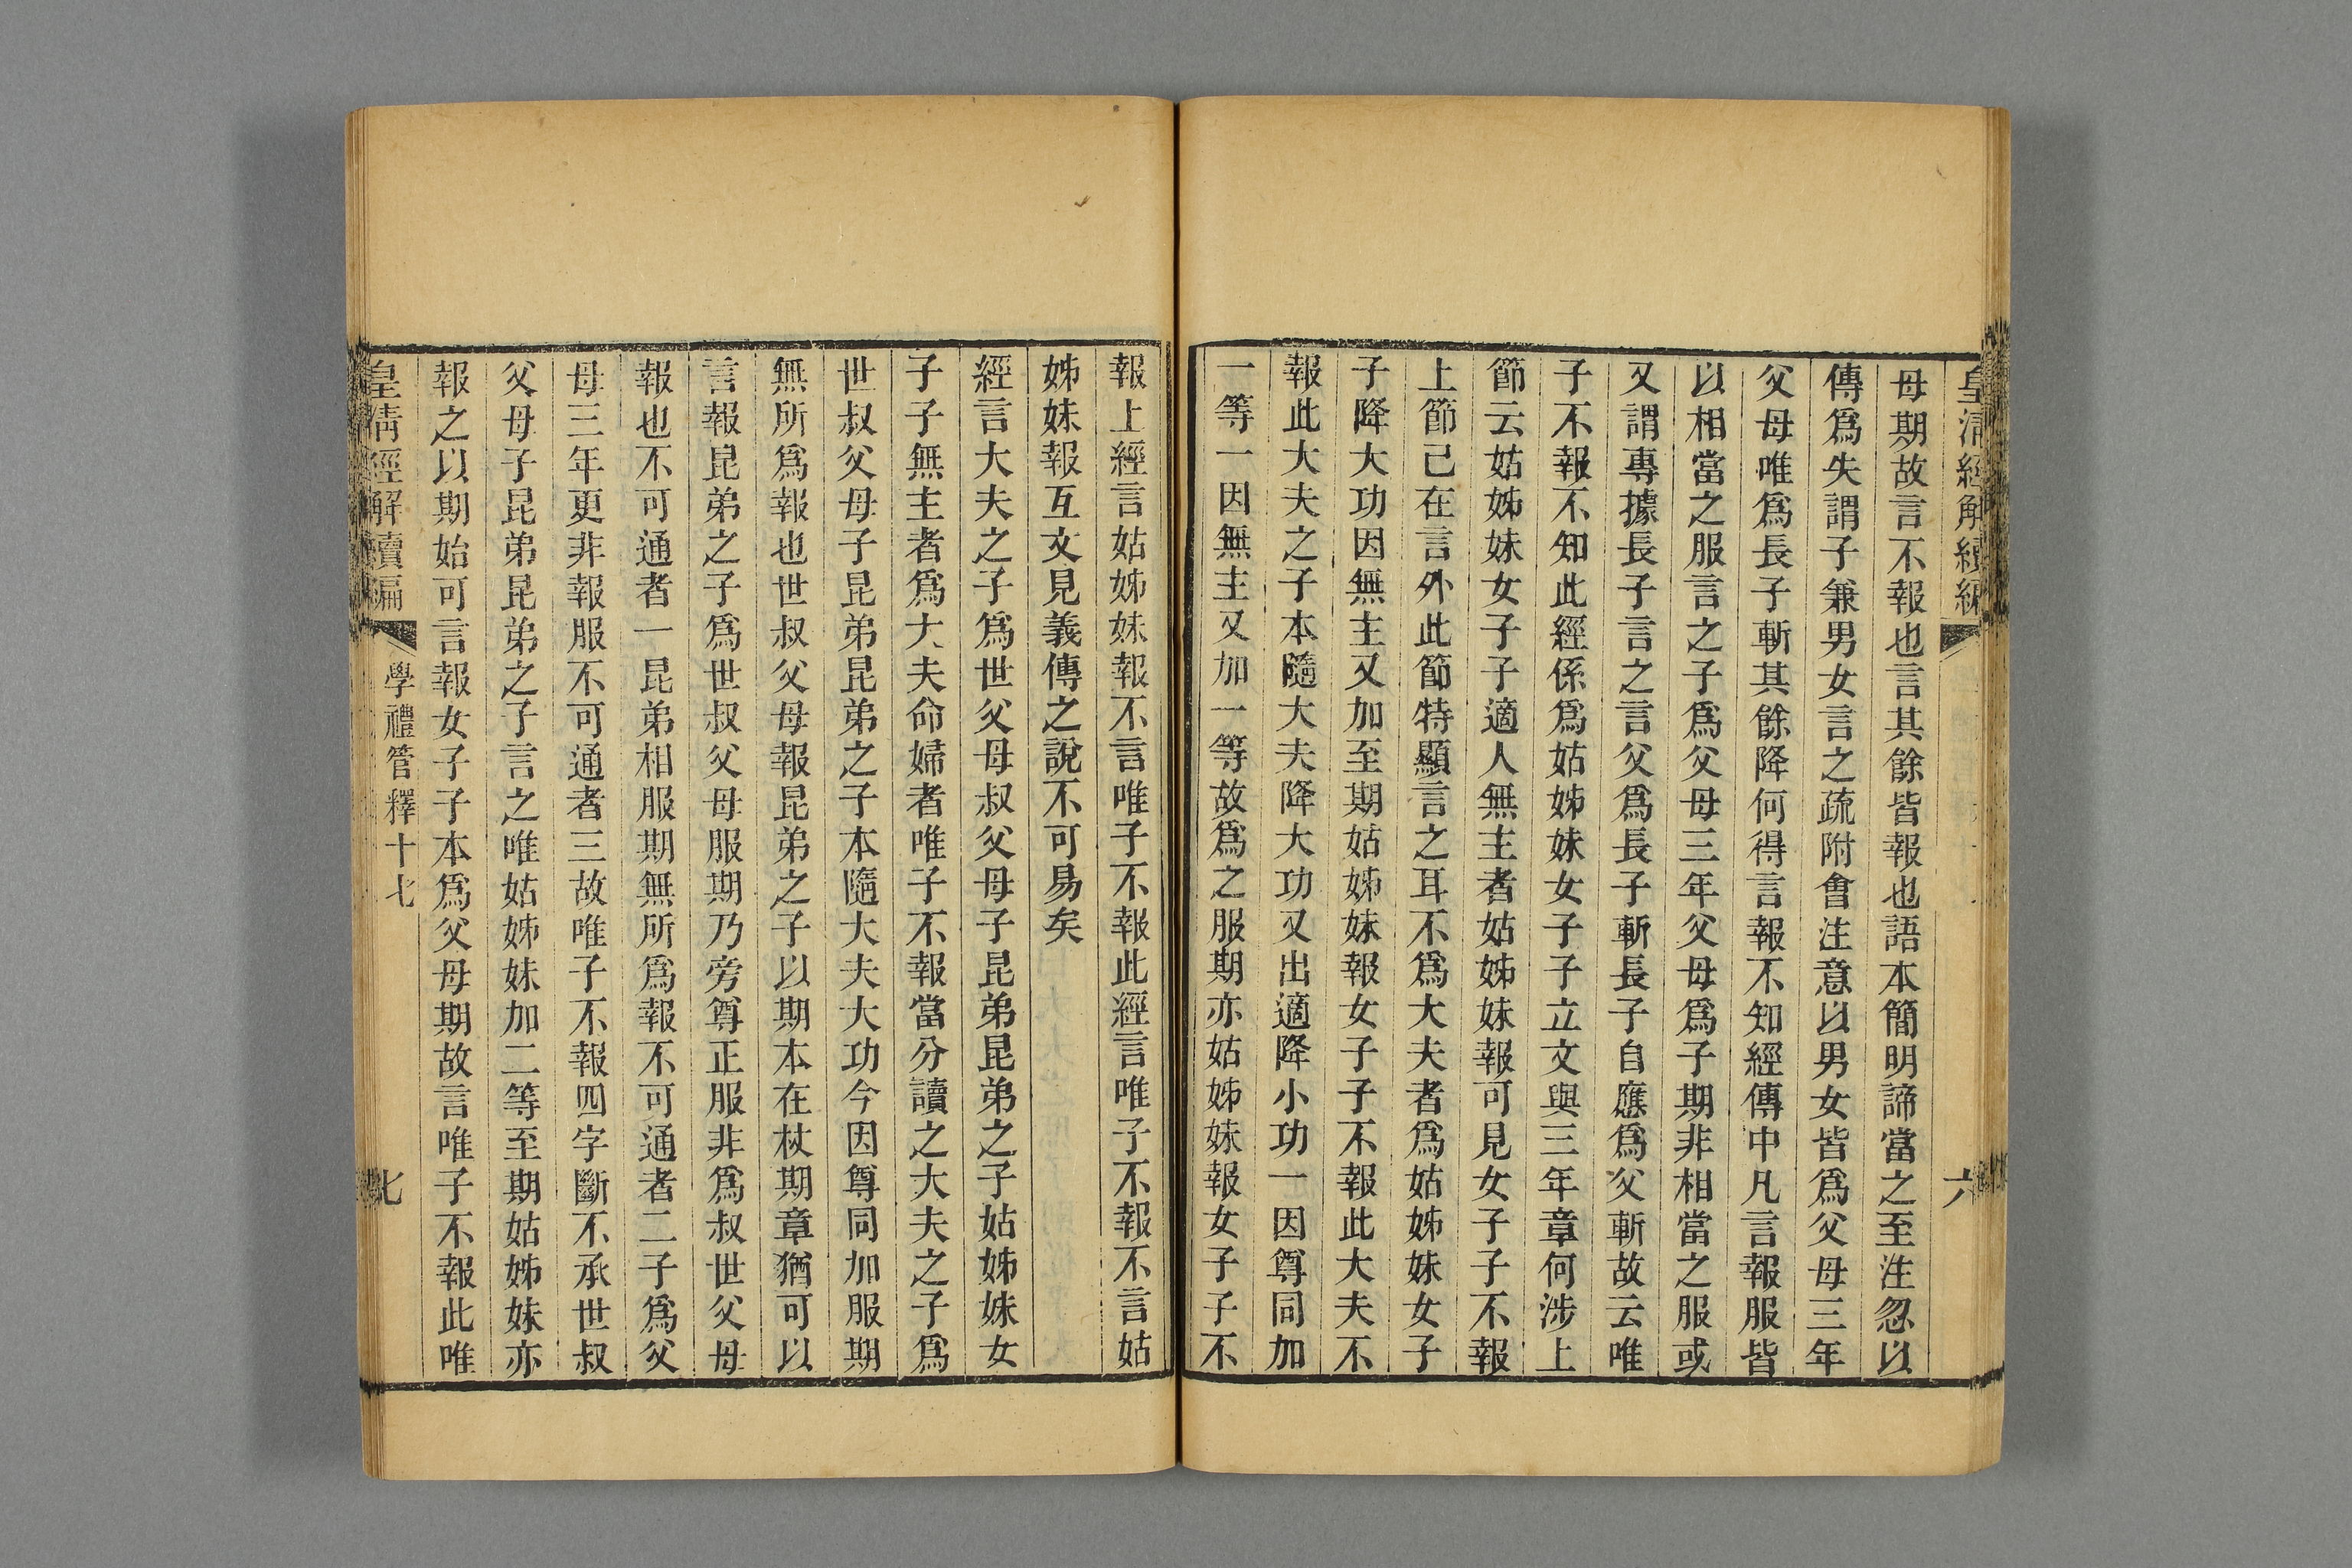 皇清經解續編
六
母期故言不報也言其餘皆報也語本簡明諦當之至注忽以
傳爲失謂子兼男女言之疏附會注意以男女皆爲父母三年
父母唯爲長子斬其餘降何得言報不知經傳中凡言報服皆
以相當之服言之子爲父母三年父母爲子期非相當之服或
又謂專據長子言之言父爲長子斬長子自應爲父斬故云唯
子不報不知此經係爲姑姊妹女子子立文與三年章何涉上
節云姑姊妹女子子適人無主者姑姊妹報可見女子子不報
上節已在言外此節特顯言之耳不爲大夫者爲姑姊妹女子
子降大功因無主又加至期姑姊妹報女子子不報此大夫不
報此大夫之子本隨大夫降大功又出適降小功一因尊同加
一等一因無主又加一等故爲之服期亦姑姊妹報女子子不
報上經言姑姊妹報不言唯子不報此經言唯子不報不言姑
姊妹報互文見義傳之說不可易矣
經言大夫之子爲世父母叔父母子昆弟昆弟之子姑姊妹女
子子無主者爲大夫命婦者唯子不報當分讀之大夫之子爲
世叔父母子昆弟昆弟之子本隨大夫大功今因尊同加服期
無所爲報也世叔父母報昆弟之子以期本在杖期章猶可以
言報昆弟之子爲世叔父母服期乃旁尊正服非爲叔世父母
報也不可通者一昆弟相服期無所爲報不可通者二子爲父
母三年更非報服不可通者三故唯子不報四字斷不承世叔
父母子昆弟昆弟之子言之唯姑姊妹加二等至期姑姊妹亦
報之以期始可言報女子子本爲父母期故言唯子不報此唯
皇清經解續編
學禮管釋十七
七